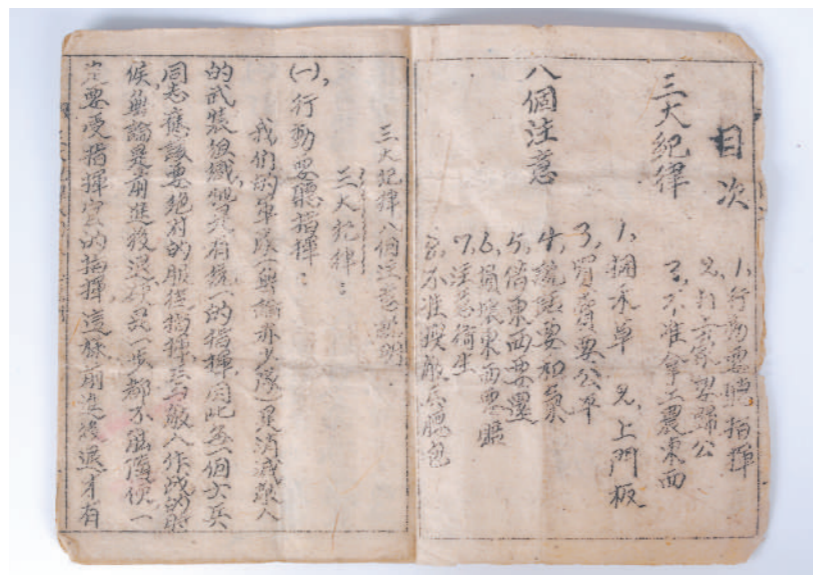 目次
三大紀律
1,行動要聽指揮
2,打土豪要歸公
3,不准拿工農東西
八個注意
1,捆禾草 2,上門板
3,買賣要公平
4,說話要和氣
5,借東西要還
6,損壞東西要賠
7,注意衛生
8,不准搜敵兵腰包
三大紀律八個注意説明
三大紀律:
(一),行動要聽指揮:
我们的軍隊一無論赤少隊一是消滅敵人
的武裝組織 有統一的指揮,因此每一個士兵
同志應該要絕对的服從指揮 敵人作战的时
候,無論是前進後退 一步都不能隨便,一
定要受指揮官的指揮,這樣前進後退才有